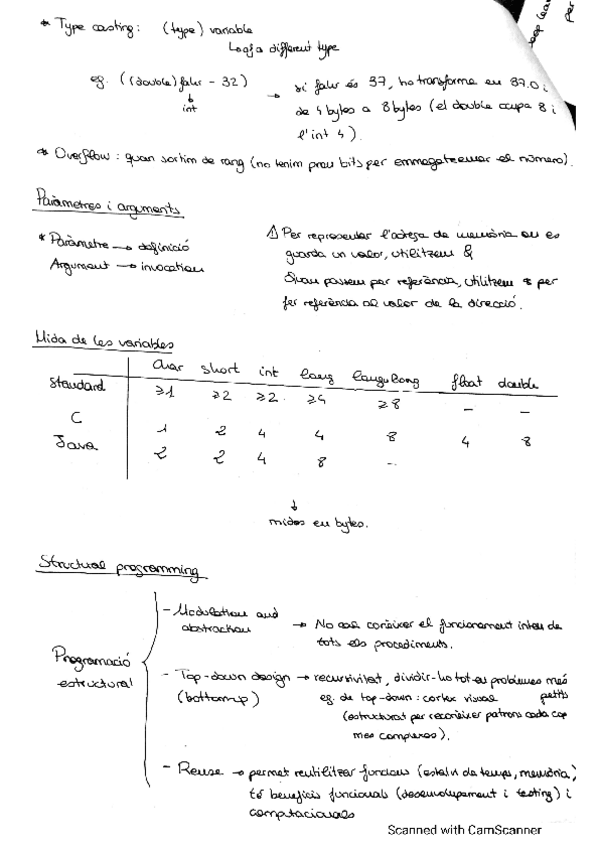 * Type casting: (type) variable
Loofa different type
eg. ((double) fahr - 32) → si fahr és 37, ho transforma en 37.0 i
int
de 4 bytes a 8 bytes (el double ocupa 8 i
l'int 4).
* Overflow: quan sortim de rang (no tenim prou bits per emmagatzemar el número).
Paràmetres i arguments
* Paràmetre → definició
Argument → invocation
⚠ Per representar l'adreça de memòria on es
guarda un valor, utilitzem &
Quan passem per referència, utilitzem * per
fer referència al valor de la direcció.
Mida de les variables
char short int long long long float double
Standard ≥1 ≥2 ≥2 ≥4 ≥8 - -
C 1 2 4 4 8 4 8
Java 2 2 4 8 -
↓
mides en bytes.
Structural programming
Programació estructural
- Modulation and abstraction → No cal conèixer el funcionament intern de
tots els procediments.
- Top-down design → recursivitat, dividir-ho tot en problemes més petits
(bottom up) eg. de top-down: cortex visual
(estructurat per reconèixer patrons cada cop
més complexos).
- Reuse → permet reutilitzar funcions (estalvi de temps, memòria)
té beneficis funcionals (desenvolupament i testing) i
computacionals
Scanned with CamScanner